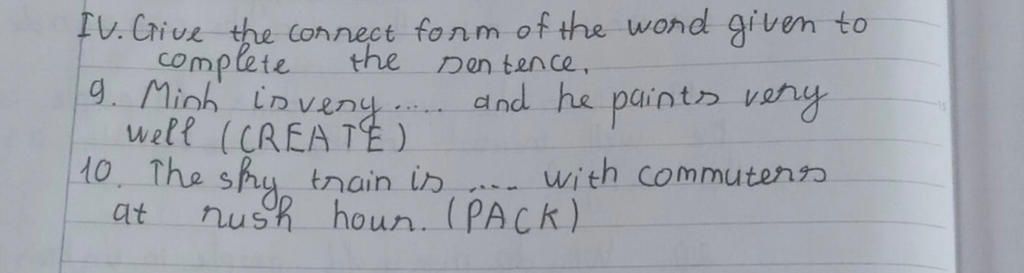 IV. Give the correct form of the word given to
complete the sentence.
9. Minh is very..... and he paints very
well (CREATE)
10. The sky train is .... with commuters
at rush hour. (PACK)